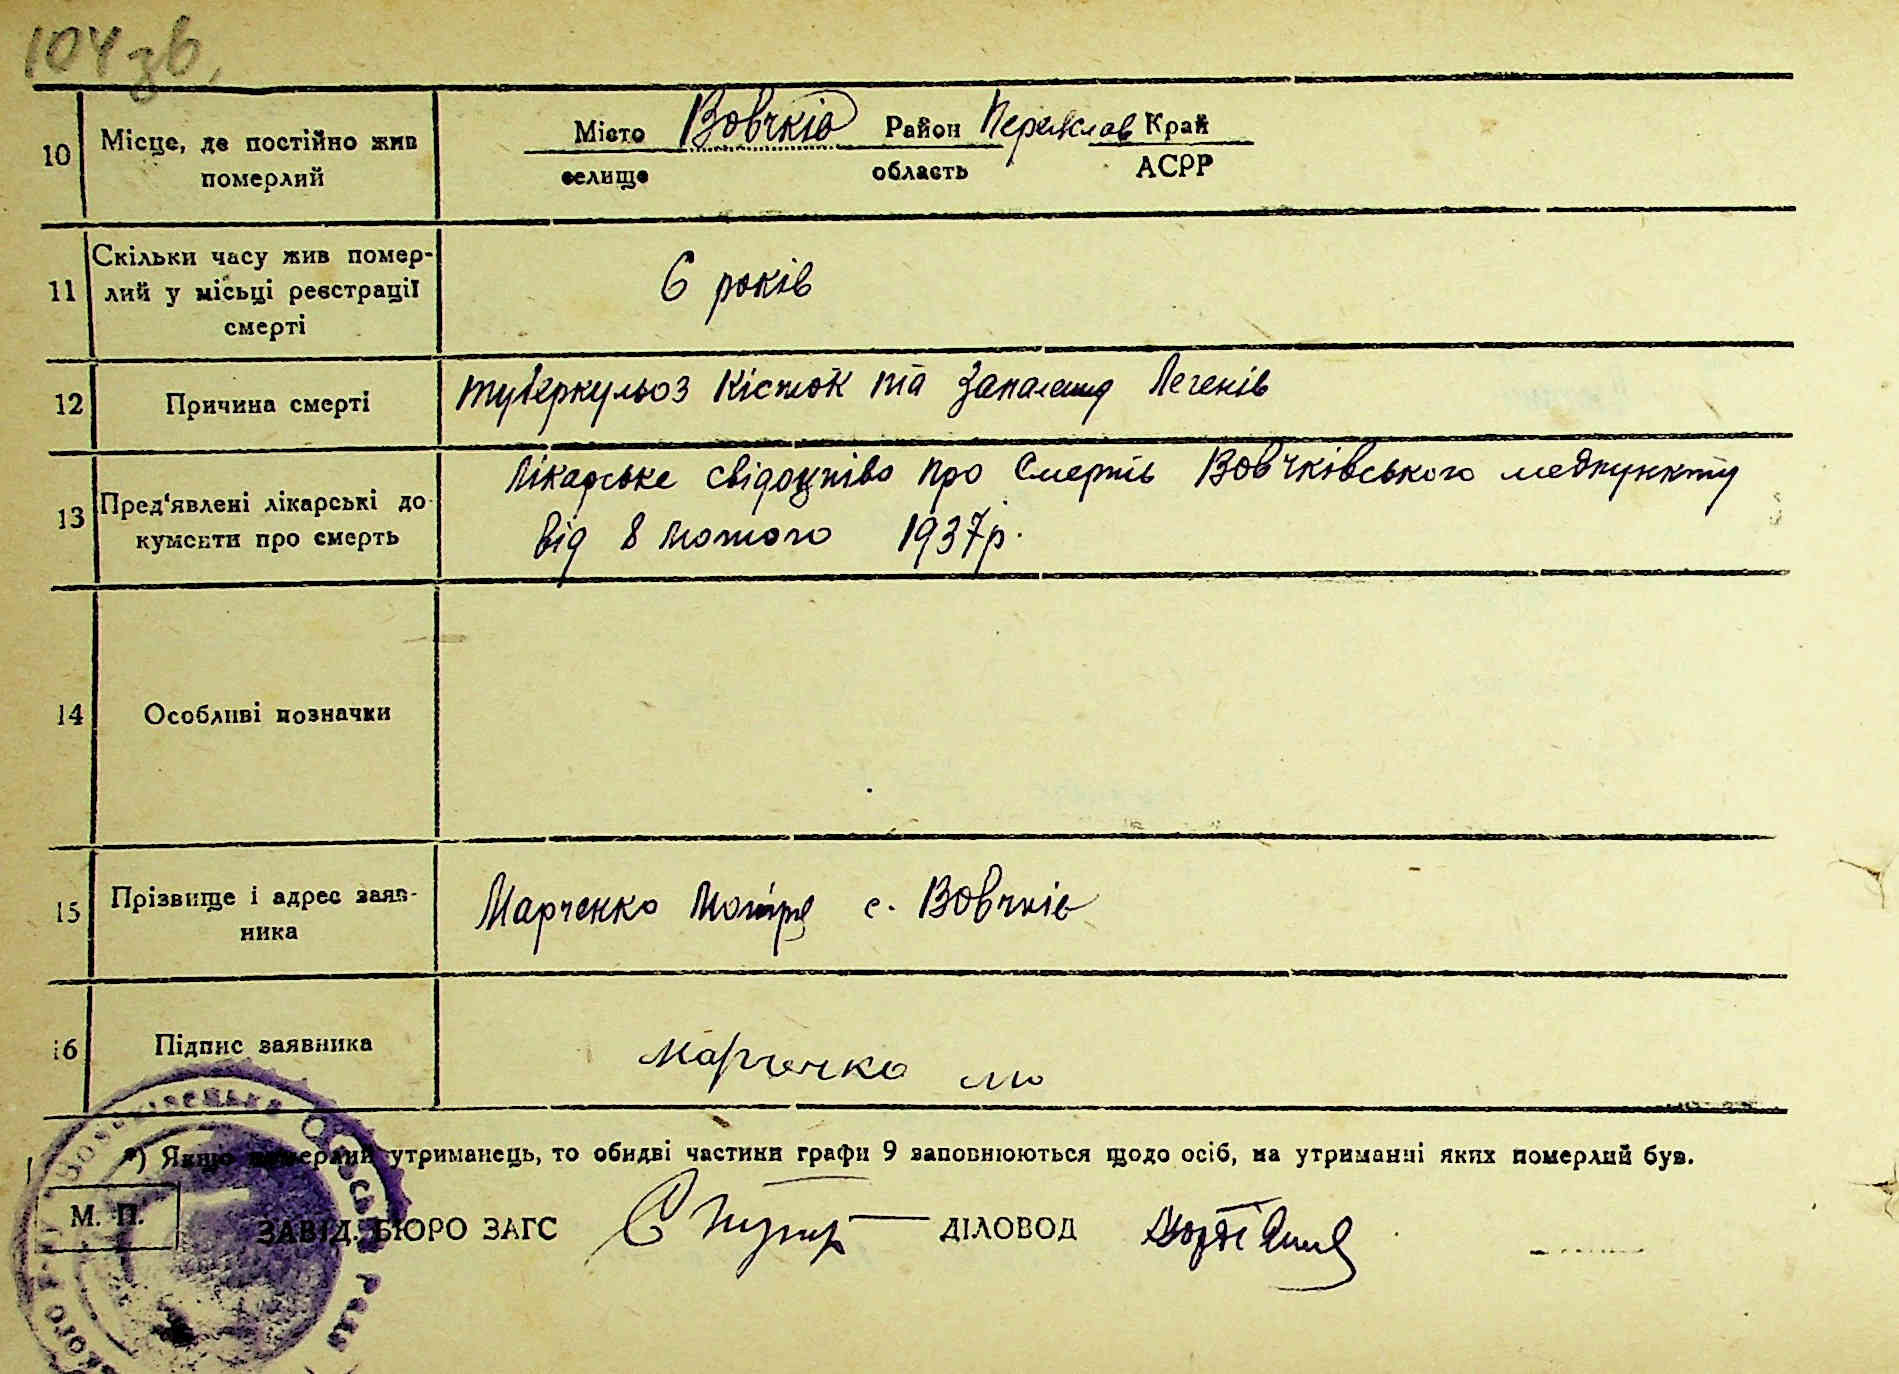 104 зв.
10 Місце, де постійно жив померлий
Місто Вовчків Район Переяслав Край
селище область АСРР
11 Скільки часу жив помер-
лий у місьці реєстрації
смерті
6 років
12 Причина смерті
туберкульоз кісток та запалення легенів
13 Пред'явлені лікарські до-
кументи про смерть
Лікарське свідоцтво про смерть Вовчківського медпункту
від 8 лютого 1937 р.
14 Особливі позначки
15 Прізвище і адрес заяв-
ника
Марченко Мотря с. Вовчків
16 Підпис заявника
Марченко Мо
*) Якщо померлий утриманець, то обидві частини графи 9 заповнюються щодо осіб, на утриманні яких померлий був.
М. П.
ЗАВІД. БЮРО ЗАГС ДІЛОВОД
Вовчківська рада